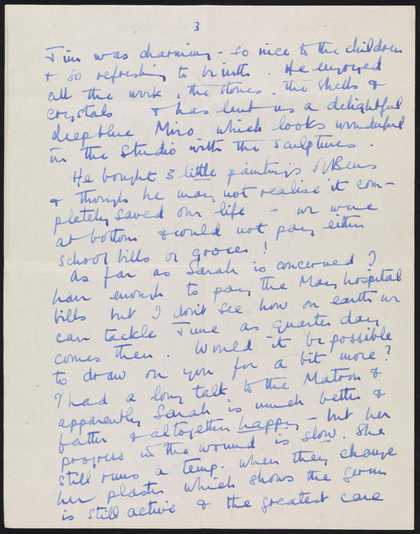 3
Jim was charming – so nice to the children
& so refreshing to be with. He enjoyed
all the work, the stones, the shells &
crystals & has lent us a delightful
deep blue Miro which looks wonderful
in the Studio with the sculptures.
He bought 3 little paintings of Ben's
& though he may not realise it com-
pletely saved our life – we were
at bottom & could not pay either
school bills or grocer!
As far as Sarah is concerned I
have enough to pay the May hospital
bills but I don't see how on earth we
can tackle June as quarter day
comes then. Would it be possible
to draw on you for a bit more?
I had a long talk to the Matron &
apparently Sarah is much better &
fatter & altogether happy – but her
progress in the wound is slow. She
still runs a temp. when they change
her plaster which shows the germ
is still active & the greatest care